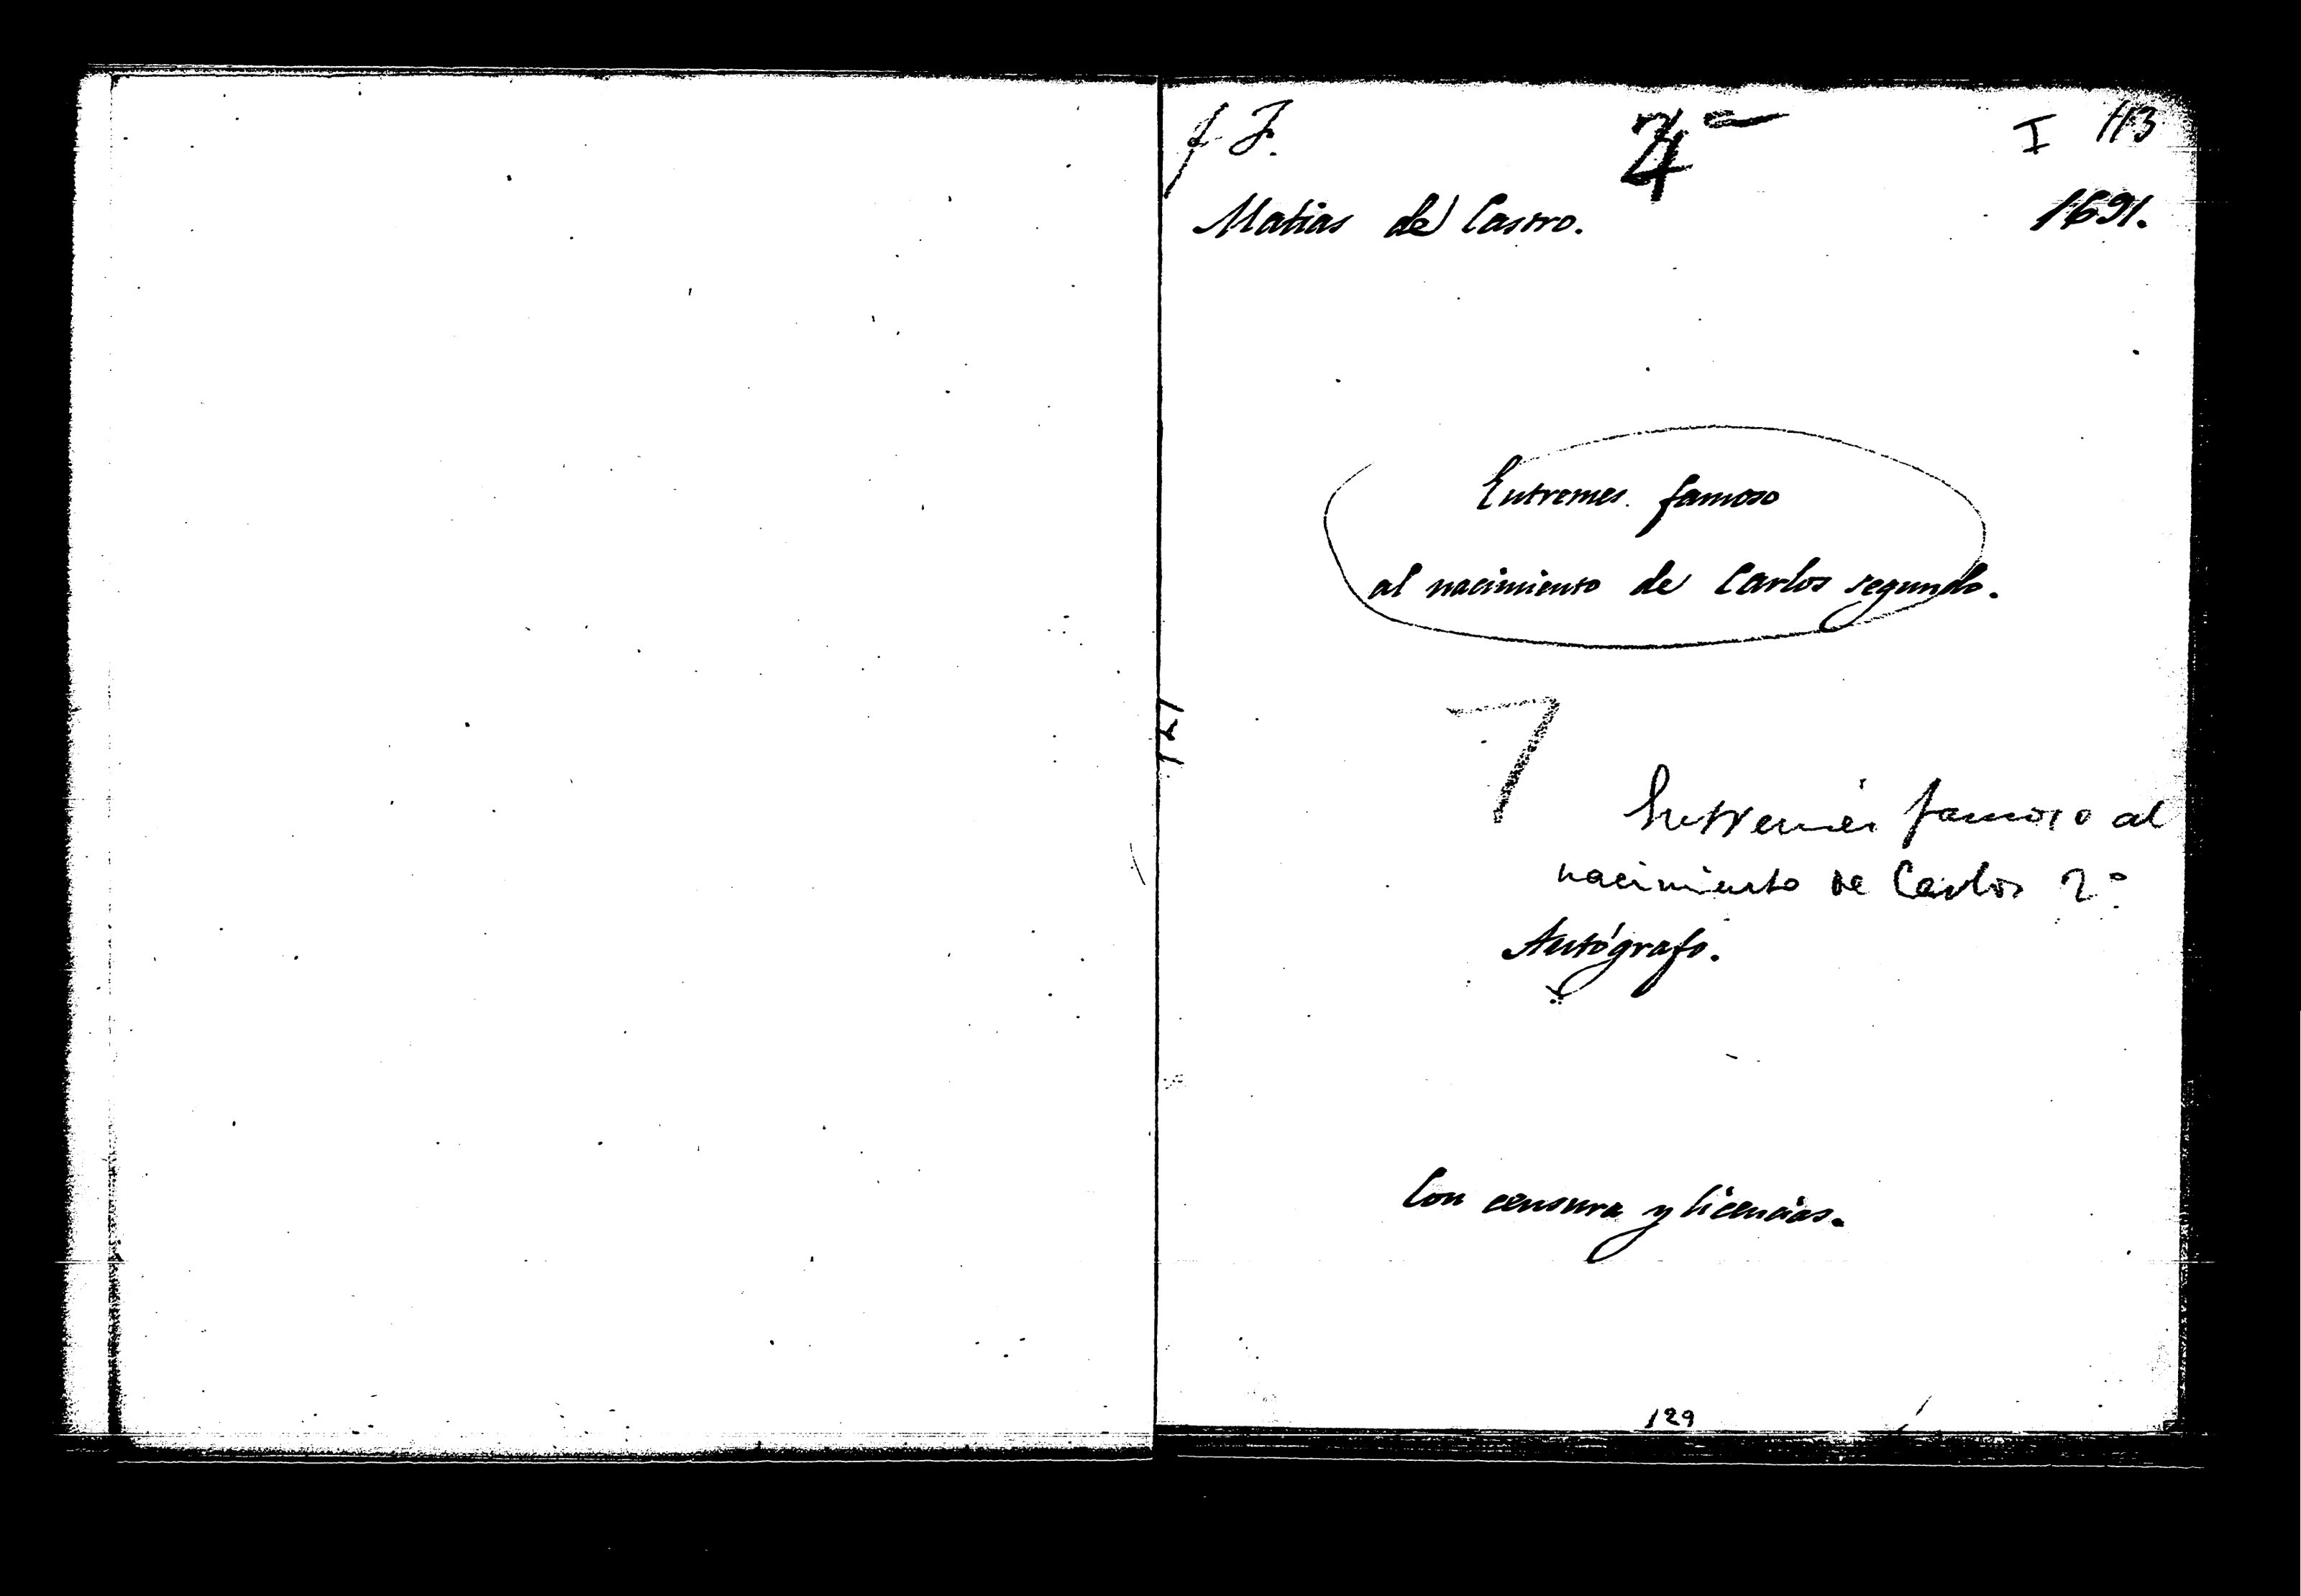 I 113
Matias de Castro. 1691.
Entremes famoso
al nacimiento de Carlos segundo.
7
Entremés famoso al
nacimiento de Carlos 2º
Autógrafo.
Con censura y licencias.
129